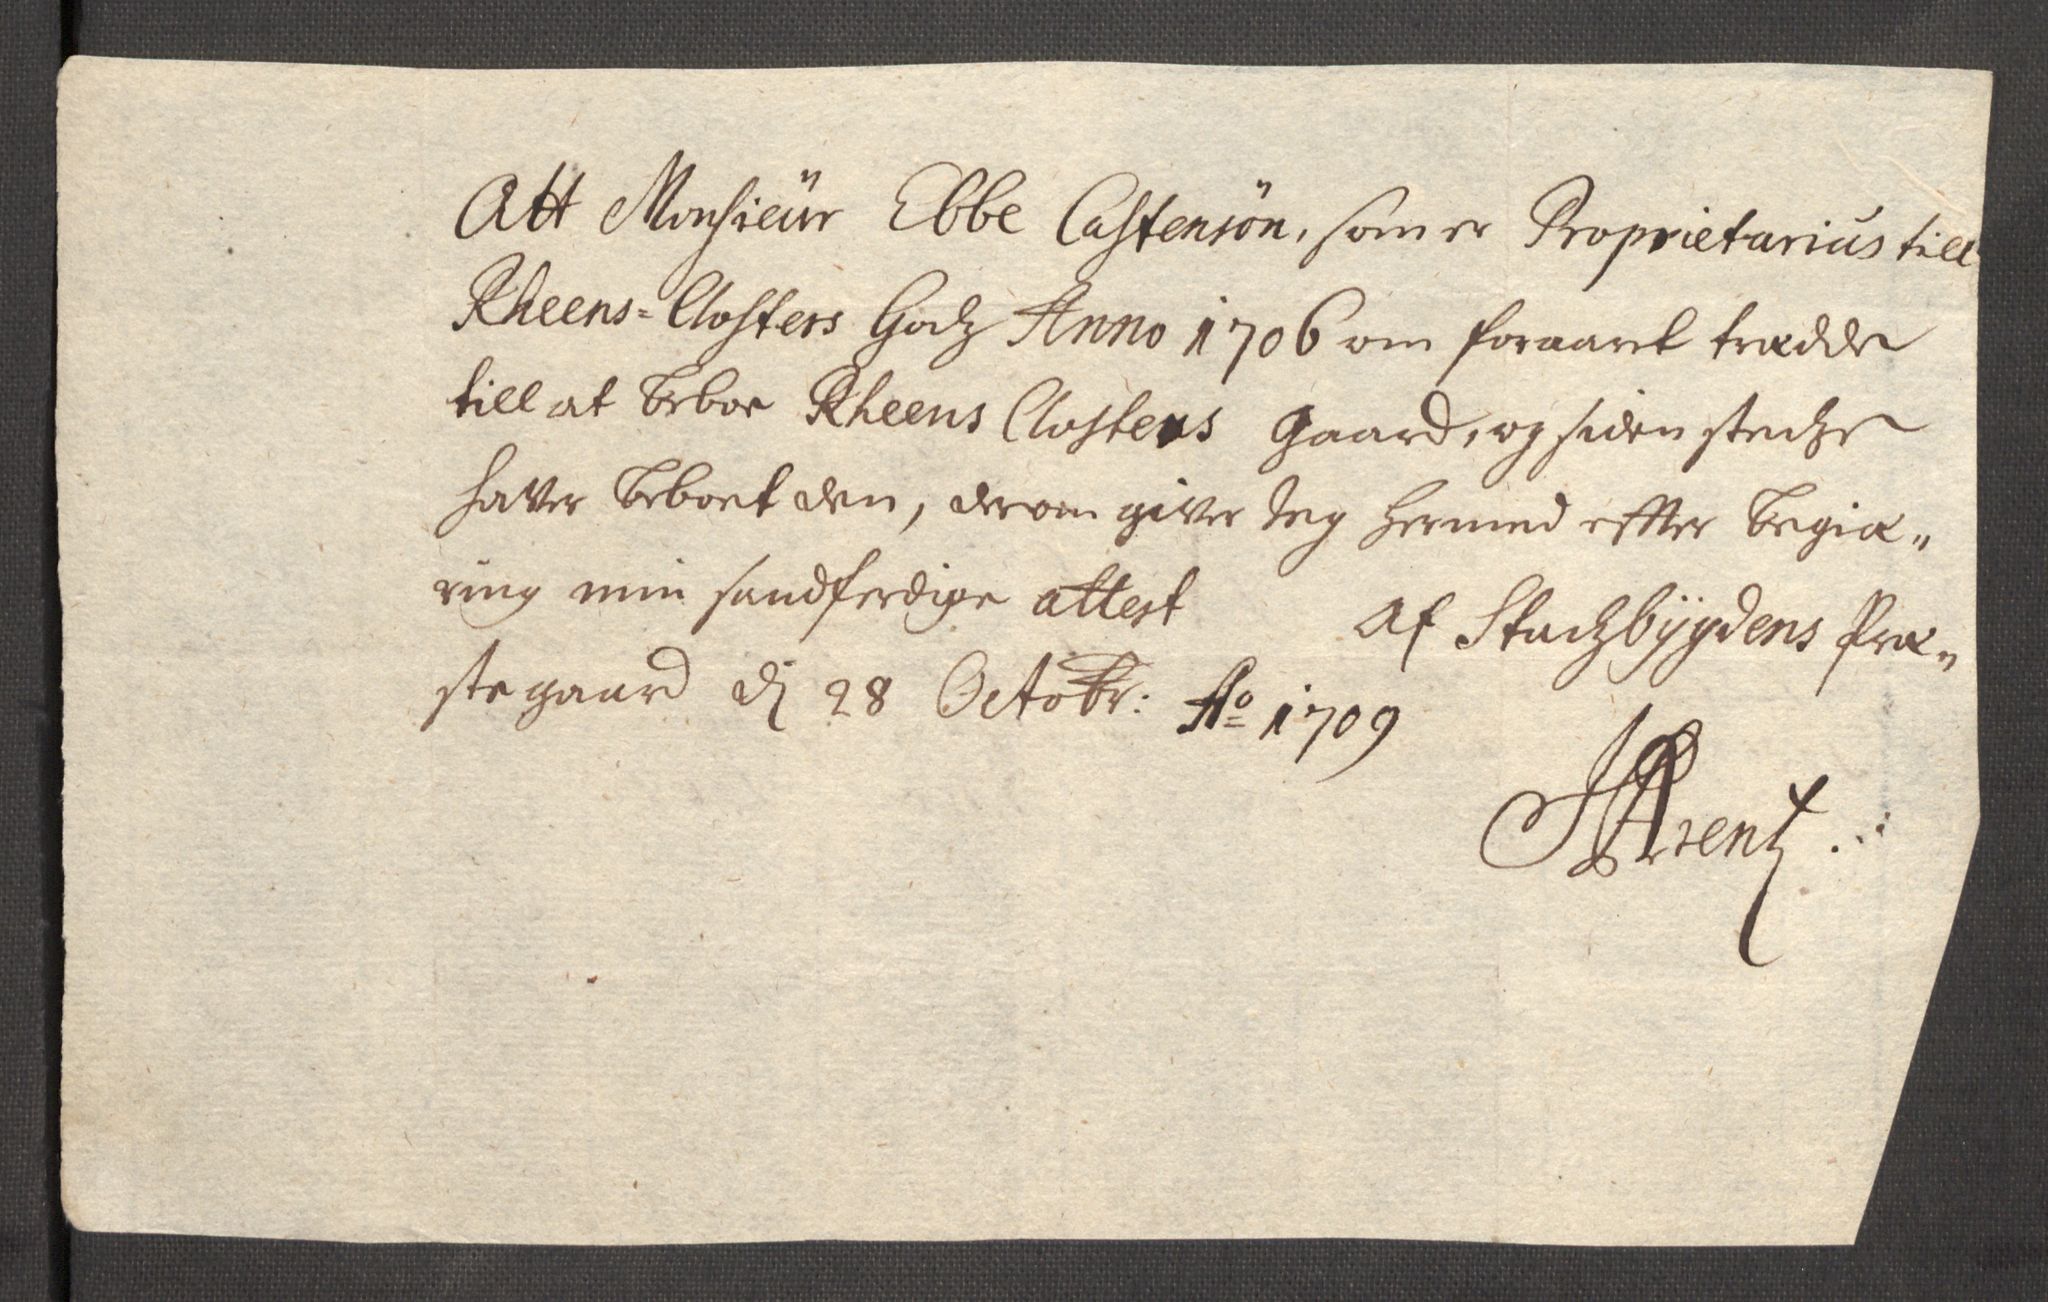 Att Monsieür Ebbe Castensön, som er Proprietarius till
Rheens=Closters Godz Anno 1706 om foraaret trædde
till at beboe Rheens Closters gaard, og siden stedze
hafver beboet den, derom giver Jeg hermed effter begiæ„
ring min sandferdige attest af Stadzbÿgdens Præ„
stegaard dj 28 Octobr: Ao 1709
Arentz